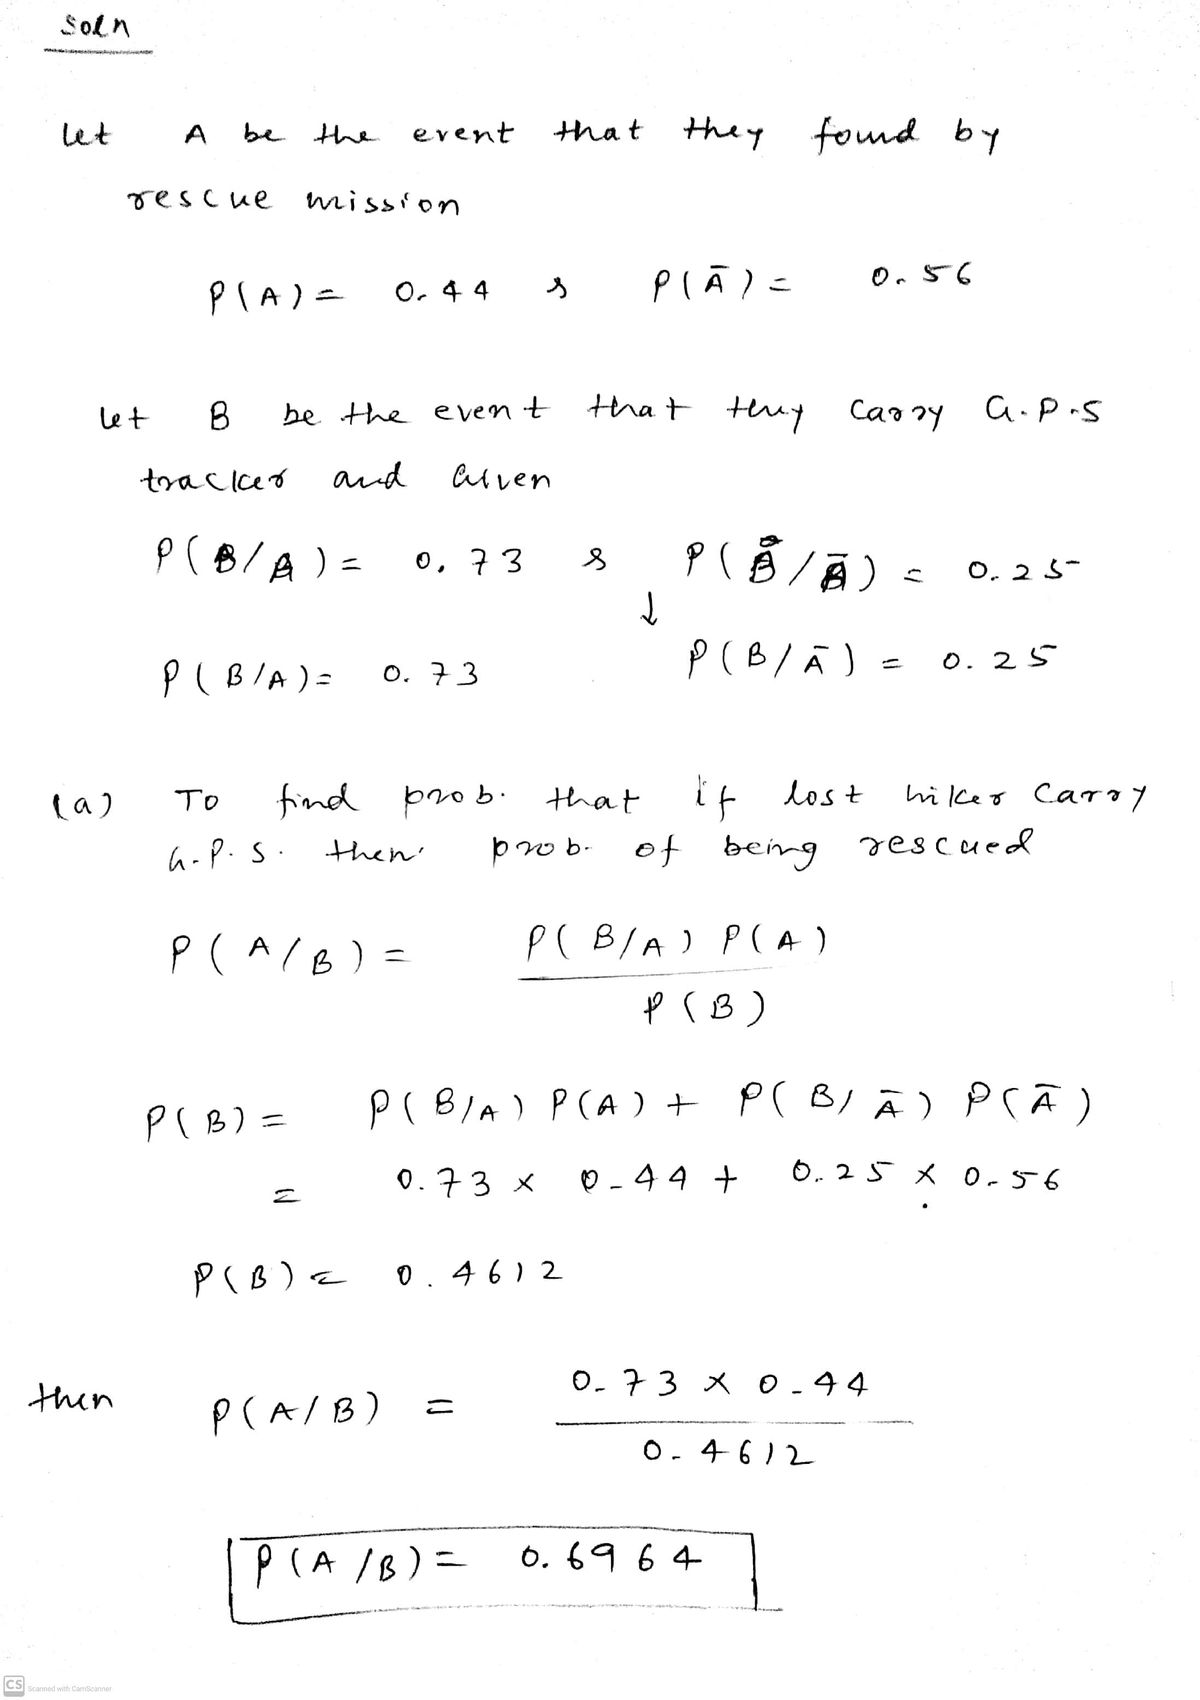 Soln
Let A be the event that they found by
rescue mission
P(A) = 0.44 & P(Ā) = 0.56
Let B be the event that they carry G.P.S
tracker and Given
P(B/A) = 0.73 & P(B̄/Ā) = 0.25
↓
P(B/A) = 0.73 P(B/Ā) = 0.25
(a) To find prob. that if lost hiker carry
G.P.S. then prob. of being rescued
P(A/B) = P(B/A) P(A)
P(B)
P(B) = P(B/A) P(A) + P(B/Ā) P(Ā)
= 0.73 × 0.44 + 0.25 × 0.56
P(B) = 0.4612
then P(A/B) = 0.73 × 0.44
0.4612
P(A/B) = 0.6964
CS Scanned with CamScanner